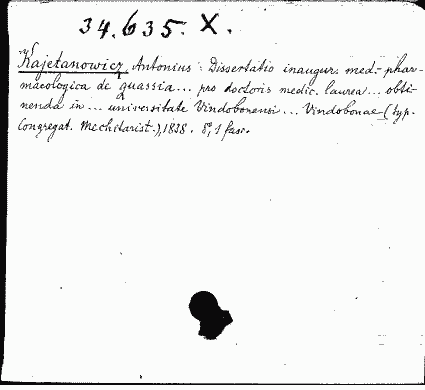 34.635. X.
Kajetanowicz, Antonius: Dissertatio inaugur. med.-phar-
macologica de quassia... pro doctoris medic. laurea... obti-
nenda in... universitate Vindobonensi... Vindobonae (typ.
Congregat. Mechitarist.), 1838. 8°, 1 fasc.